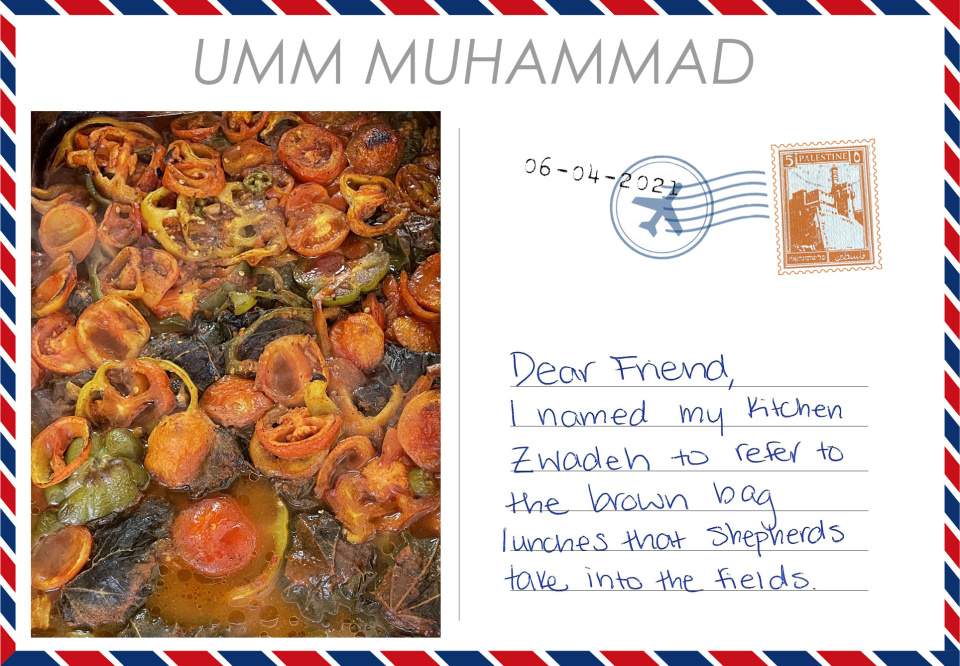 UMM MUHAMMAD
06-04-2021
5 PALESTINE ٥
Dear Friend,
I named my kitchen
Zwadeh to refer to
the brown bag
lunches that shepherds
take into the fields.